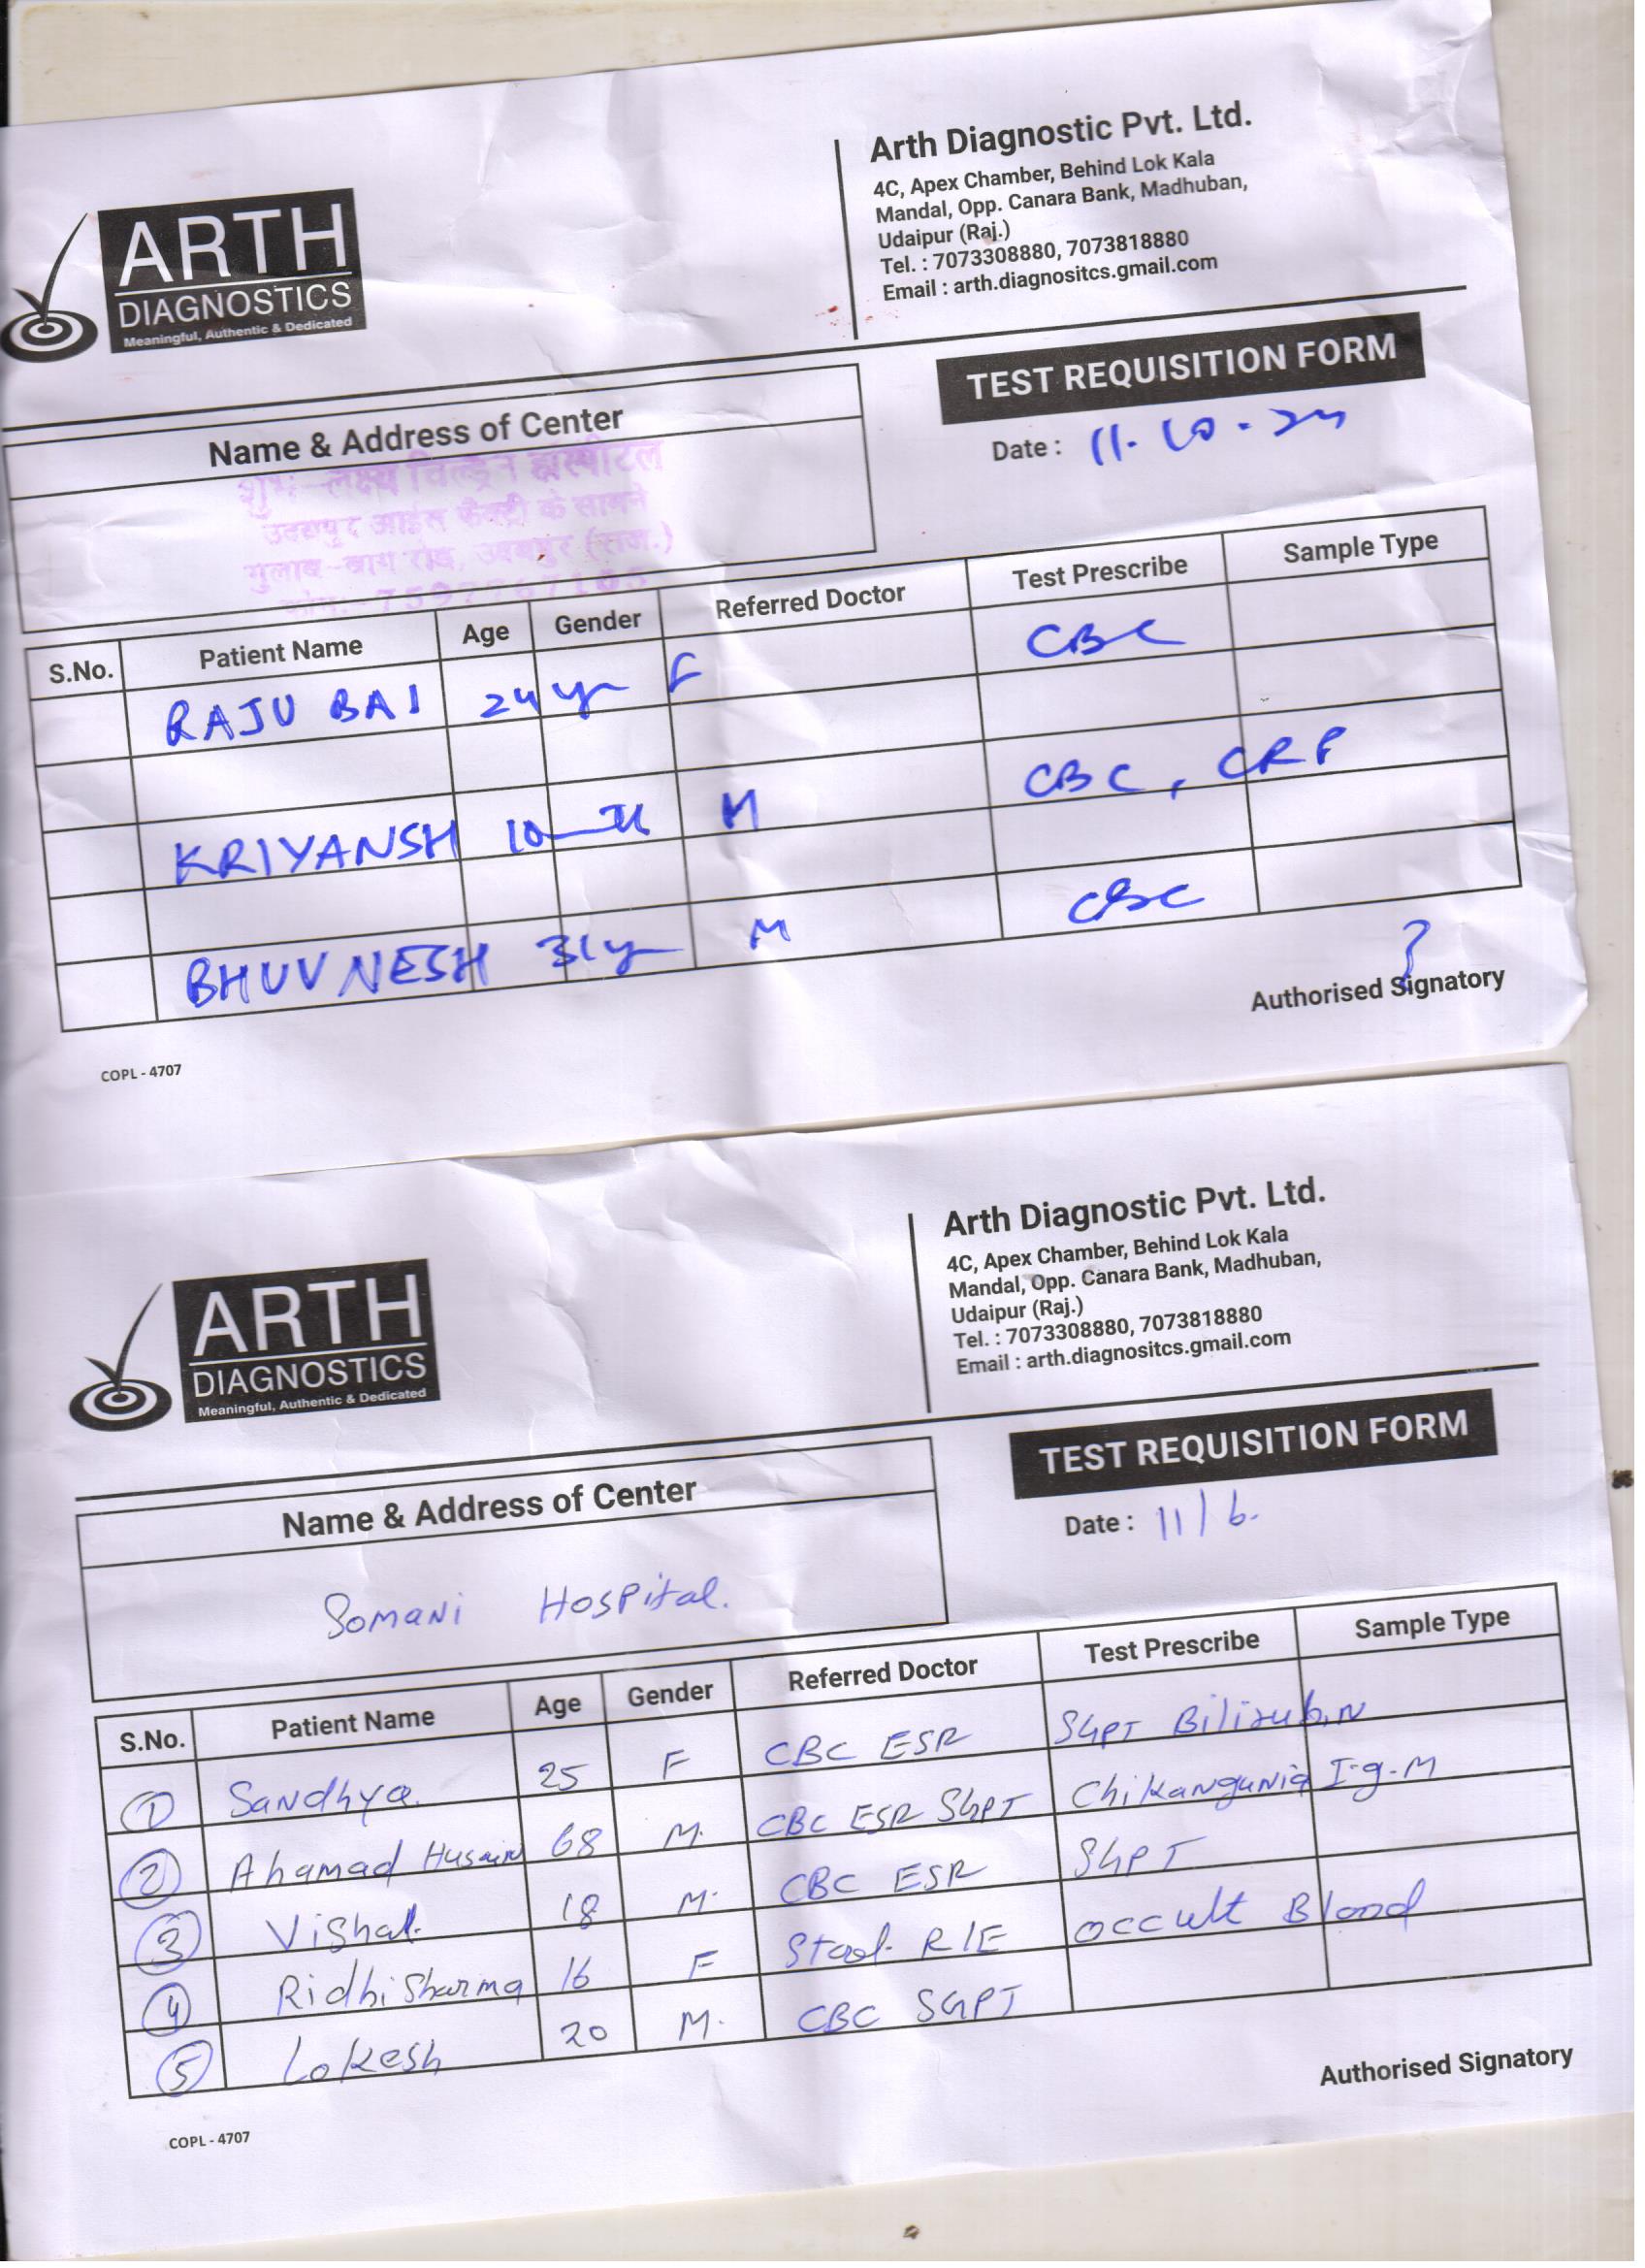 ARTH
DIAGNOSTICS
Meaningful, Authentic & Dedicated
Arth Diagnostic Pvt. Ltd.
4C, Apex Chamber, Behind Lok Kala
Mandal, Opp. Canara Bank, Madhuban,
Udaipur (Raj.)
Tel. : 7073308880, 7073818880
Email : arth.diagnositcs.gmail.com
TEST REQUISITION FORM
Date : 11-10-24
Name & Address of Center
शुभ-लक्ष्य चिल्ड्रेन हास्पीटल
उदयपुर आईस फैक्ट्री के सामने
गुलाब-बाग रोड, उदयपुर (राज.)
S.No. Patient Name Age Gender Referred Doctor Test Prescribe Sample Type
RAJU BAI 24 yr F CBC
KRIYANSH 10 M CBC, CRP
BHUVNESH 31 yr M CBC
Authorised Signatory
COPL - 4707
ARTH
DIAGNOSTICS
Meaningful, Authentic & Dedicated
Arth Diagnostic Pvt. Ltd.
4C, Apex Chamber, Behind Lok Kala
Mandal, Opp. Canara Bank, Madhuban,
Udaipur (Raj.)
Tel. : 7073308880, 7073818880
Email : arth.diagnositcs.gmail.com
TEST REQUISITION FORM
Date : 11/6.
Name & Address of Center
Somani Hospital.
S.No. Patient Name Age Gender Referred Doctor Test Prescribe Sample Type
1 Sandhya. 25 F CBC ESR SGPT Bilirubin
2 Ahamad Husain 68 M. CBC ESR SGPT Chikangunia I.g.M
3 Vishal. 18 M. CBC ESR SGPT
4 Ridhi Sharma 16 F Stool R/E Occult Blood
5 Lokesh 20 M. CBC SGPT
Authorised Signatory
COPL - 4707